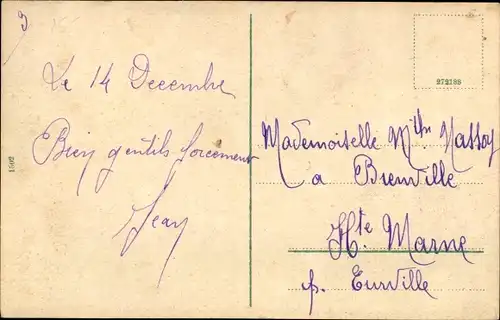 9
Le 14 Decembre
Bien gentils forcement
Jean
1502
272188
Mademoiselle Massoy
a Bienville
Hte Marne
p. Eurville